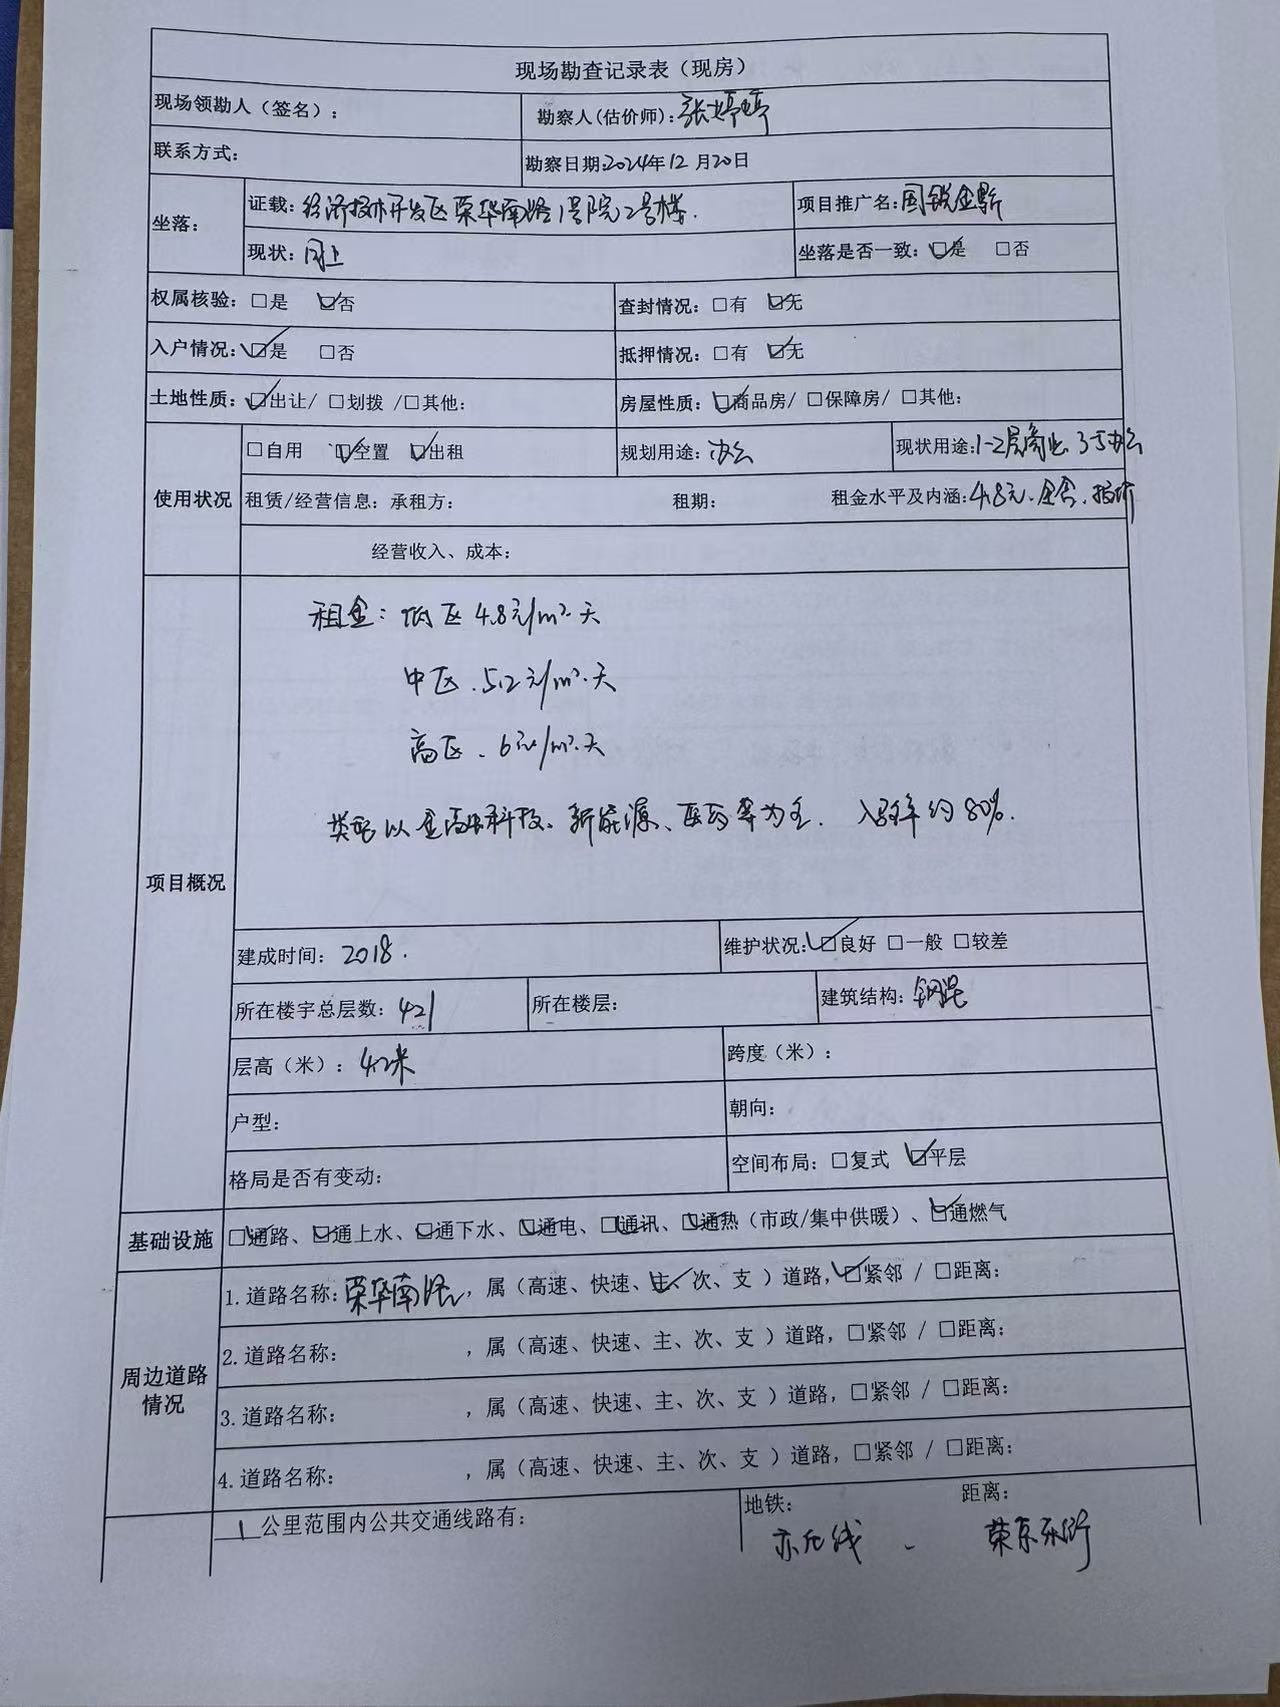 现场勘查记录表（现房）
现场领勘人（签名）： 勘察人(估价师)：张婷婷
联系方式： 勘察日期：2024年12月20日
坐落： 证载：经济技术开发区荣华南路1号院2号楼. 项目推广名：国锐金嵿
现状：同上 坐落是否一致：☑是 □否
权属核验：□是 ☑否 查封情况：□有 ☑无
入户情况：☑是 □否 抵押情况：□有 ☑无
土地性质：☑出让/ □划拨 /□其他： 房屋性质：☑商品房/ □保障房/ □其他：
使用状况 □自用 ☑空置 ☑出租 规划用途：办公 现状用途：1-2层商业 3-5办公
租赁/经营信息：承租方： 租期： 租金水平及内涵：4.8元.
经营收入、成本：
项目概况
租金：低区 4.8元/m²·天
中区．5.2元/m²·天
高区．6元/m²·天
以 科技、新能源、医药等为主． 入驻率约80%.
建成时间：2018. 维护状况：☑良好 □一般 □较差
所在楼宇总层数： 所在楼层： 建筑结构：钢混
层高（米）：4.2米 跨度（米）：
户型： 朝向：
格局是否有变动： 空间布局：□复式 ☑平层
基础设施 ☑通路、☑通上水、☑通下水、☑通电、☑通讯、☑通热（市政/集中供暖）、☑通燃气
周边道路情况
1.道路名称：荣华南路，属（高速、快速、主✓次、支 ）道路，☑紧邻 / □距离：
2.道路名称： ，属（高速、快速、主、次、支 ）道路，□紧邻 / □距离：
3.道路名称： ，属（高速、快速、主、次、支 ）道路，□紧邻 / □距离：
4.道路名称： ，属（高速、快速、主、次、支 ）道路，□紧邻 / □距离：
1公里范围内公共交通线路有： 地铁： 距离：
亦庄线 - 荣京东街